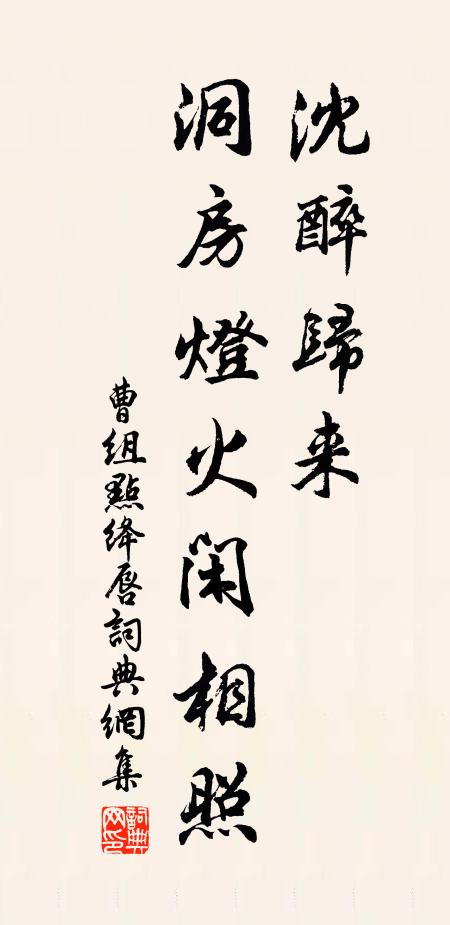 沈醉歸来
洞房燈火閑相照
曹組點絳唇詞典網集
詞典网印